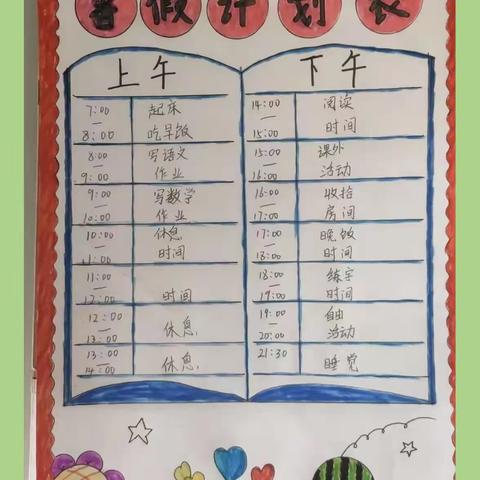 暑假计划表
上午
下午
7:00
—
8:00
起床
吃早饭
14:00
—
15:00
阅读
时间
8:00
—
9:00
写语文
作业
15:00
—
16:00
课外
活动
9:00
—
10:00
写数学
作业
16:00
—
17:00
收拾
房间
10:00
—
11:00
休息
时间
17:00
—
18:00
晚饭
时间
11:00
—
12:00
时间
18:00
—
19:00
练字
时间
12:00
—
13:00
休息
19:00
—
20:00
自由
活动
13:00
—
14:00
休息
21:30
睡觉